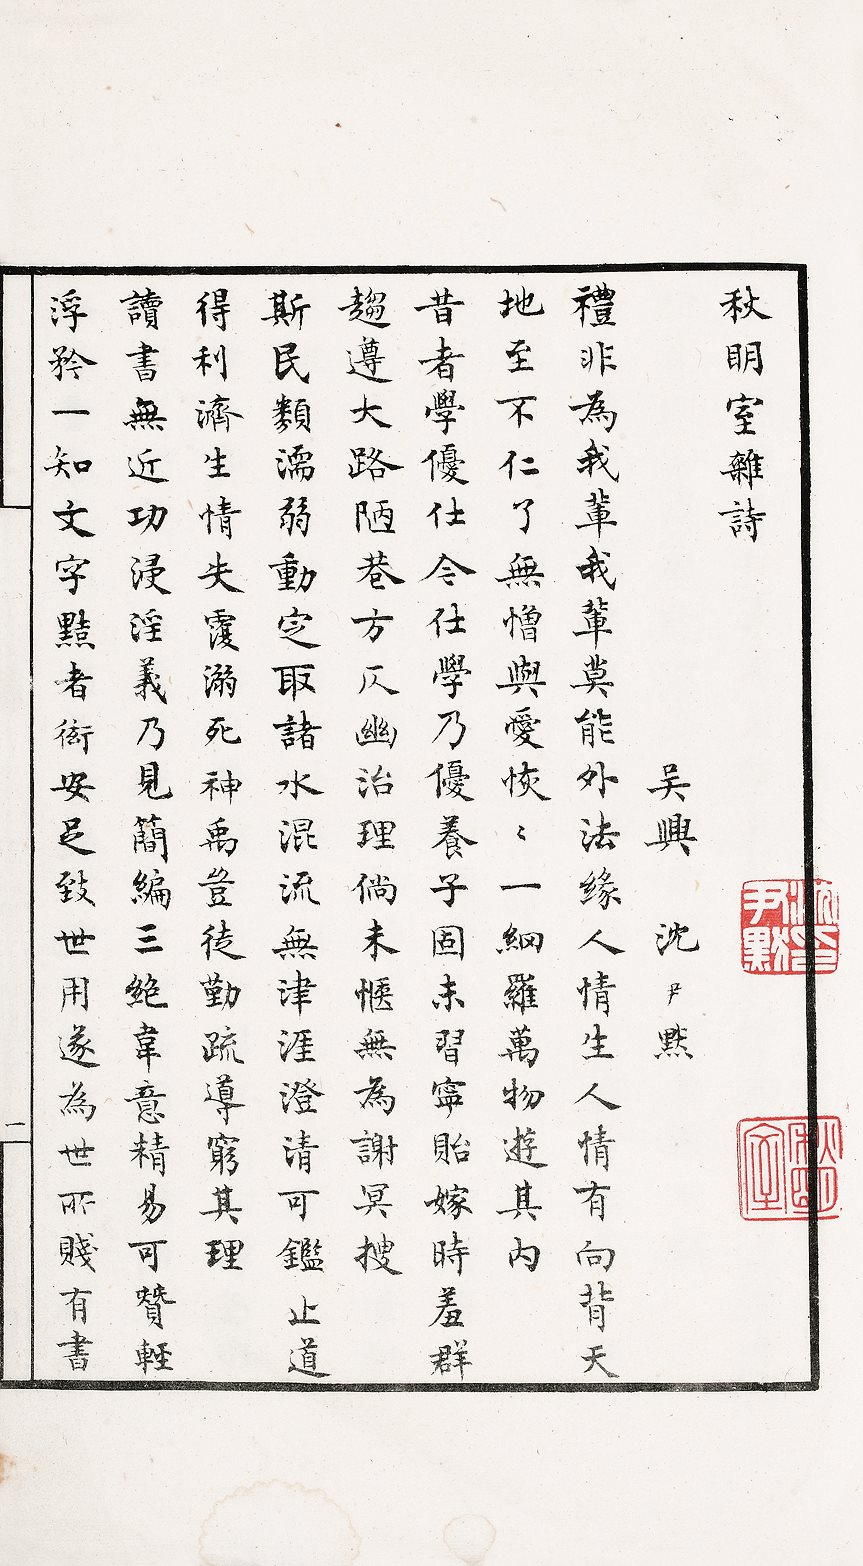 秋明室雜詩
吳興 沈尹默
禮非為我輩我輩莫能外法緣人情生人情有向背天
地至不仁了無憎與愛恢〻一網羅萬物遊其內
昔者學優仕今仕學乃優養子固未習寧貽嫁時羞群
趨遵大路陋巷方仄幽治理倘未愜無為謝冥搜
斯民類濡弱動定取諸水混流無津涯澄清可鑑止道
得利濟生情失覆溺死神禹豈徒勤疏導窮其理
讀書無近功浸淫義乃見簡編三絕韋意精易可贊輕
浮矜一知文字黠者衒安足致世用遂為世所賤有書
一
沈尹默
秋明室